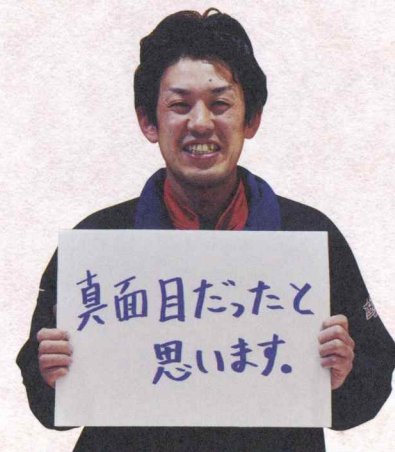 真面目だったと
思います。